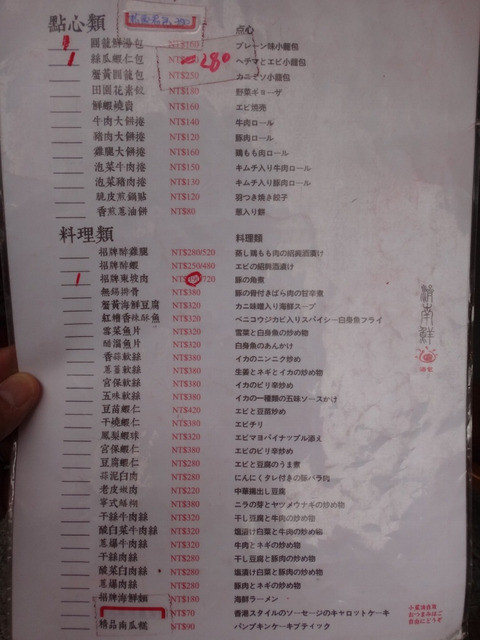 點心類 點心
圓籠鮮湯包 NT$160 プレーン味小籠包
絲瓜蝦仁包 280 ヘチマとエビ小籠包
蟹黃圓籠包 NT$250 カニミソ小籠包
田園花素餃 NT$180 野菜ギョーザ
鮮蝦燒賣 NT$160 エビ焼売
牛肉大餅捲 NT$140 牛肉ロール
豬肉大餅捲 NT$120 豚肉ロール
雞腿大餅捲 NT$160 鶏もも肉ロール
泡菜牛肉捲 NT$150 キムチ入り牛肉ロール
泡菜豬肉捲 NT$130 キムチ入り豚肉ロール
脆皮煎鍋貼 NT$120 羽つき焼き餃子
香煎蔥油餅 NT$80 葱入り餅
料理類 料理類
招牌醉雞腿 NT$280/520 蒸し鶏もも肉の紹興酒漬け
招牌醉蝦 NT$250/480 エビの紹興酒漬け
招牌東坡肉 /720 豚の角煮
無錫排骨 NT$380 豚の骨付きばら肉の甘辛煮
蟹黃海鮮豆腐 NT$320 カニ味噌入り海鮮スープ
紅糟香酥魚 NT$320 ベニコウジカビ入りスパイシー白身魚フライ
雪菜魚片 NT$320 雪菜と白身魚の炒め物
醋溜魚片 NT$320 白身魚のあんかけ
香蒜軟絲 NT$380 イカのニンニク炒め
蔥薑軟絲 NT$380 生姜とネギとイカの炒め物
宮保軟絲 NT$380 イカのピリ辛炒め
五味軟絲 NT$380 イカの一種類の五味ソースかけ
豆苗蝦仁 NT$420 エビと豆苗炒め
干燒蝦仁 NT$380 エビチリ
鳳梨蝦球 NT$320 エビマヨパイナップル添え
宮保蝦仁 NT$380 エビのピリ辛炒め
豆腐蝦仁 NT$280 エビと豆腐のうま煮
蒜泥白肉 NT$280 にんにくタレ付きの豚バラ肉
老皮嫩肉 NT$220 中華揚出し豆腐
寧式鱔糊 NT$380 ニラの芽とヤツメウナギの炒め物
干絲牛肉絲 NT$320 干し豆腐と牛肉の炒め物
酸白菜牛肉絲 NT$320 塩漬け白菜と牛肉の炒め物
蔥爆牛肉絲 NT$320 牛肉とネギの炒め物
干絲肉絲 NT$280 干し豆腐と豚肉の炒め物
酸菜白肉絲 NT$280 塩漬け白菜と豚肉の炒め物
蔥爆肉絲 NT$280 豚肉とネギの炒め物
招牌海鮮麵 NT$180 海鮮ラーメン
NT$70 香港スタイルのソーセージのキャロットケーキ
精品南瓜糕 NT$90 パンプキンケーキブティック
濟南鮮
小菜請自取
おつまみはご
自由にどうぞ